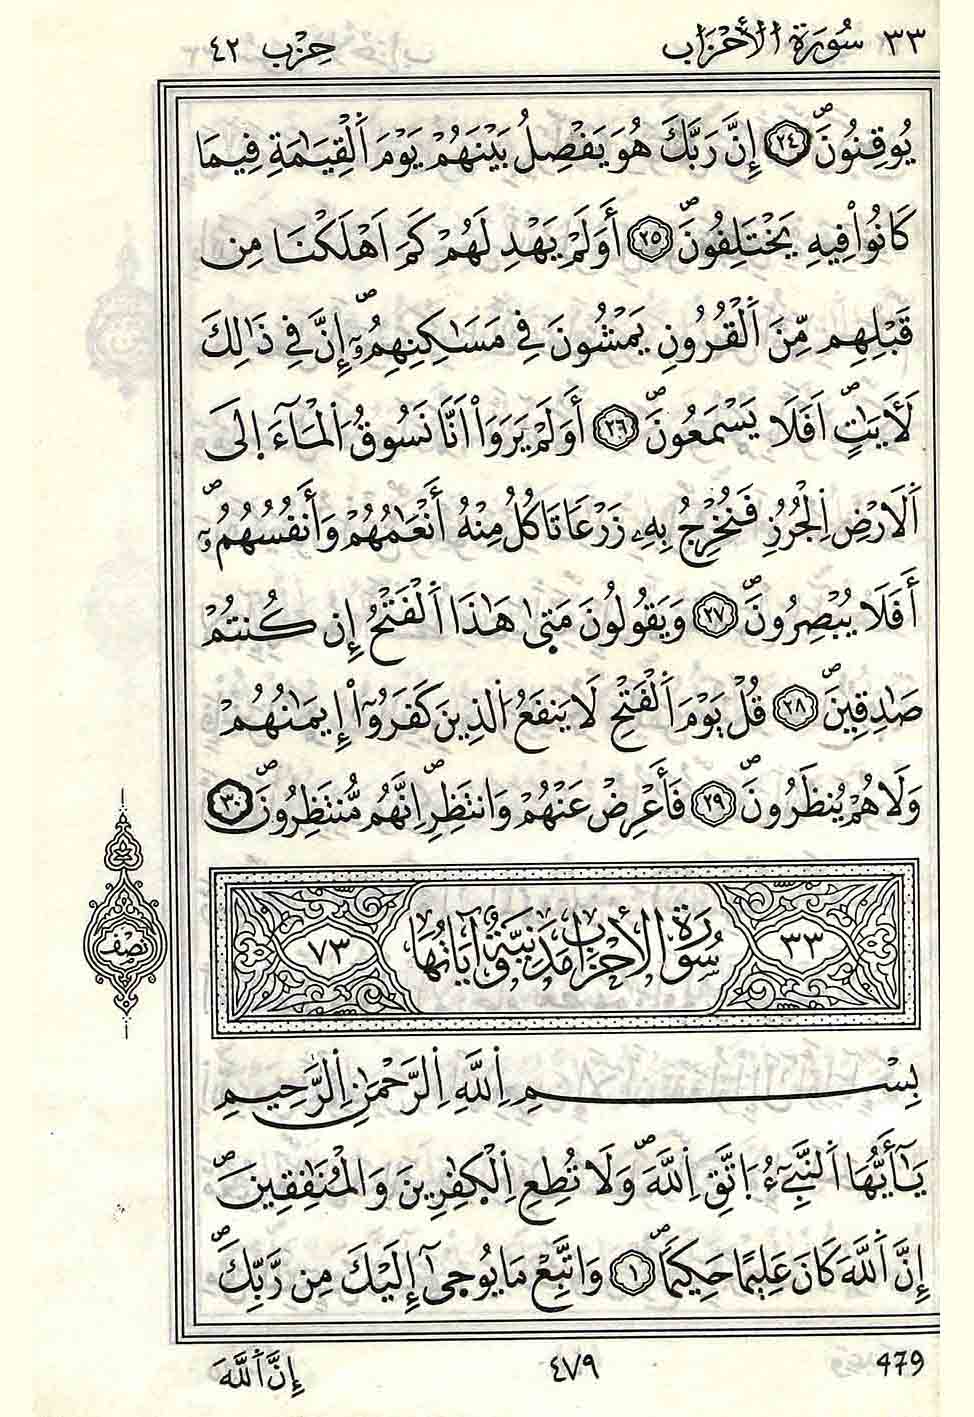 ٣٣ سُورَةُ الْأَحْزَابِ حِزْب ٤٢
يُوقِنُونَۖ ٢٤ إِنَّ رَبَّكَ هُوَ يَفْصِلُ بَيْنَهُمْ يَوْمَ اَ۬لْقِيَٰمَةِ فِيمَا
كَانُواْ فِيهِ يَخْتَلِفُونَۖ ٢٥ أَوَلَمْ يَهْدِ لَهُمْ كَمَ اَهْلَكْنَا مِن
قَبْلِهِم مِّنَ اَ۬لْقُرُونِ يَمْشُونَ فِے مَسَٰكِنِهِمُۥٓۖ إِنَّ فِے ذَٰلِكَ
لَأٓيَٰتٍۖ اَفَلَا يَسْمَعُونَۖ ٢٦ أَوَلَمْ يَرَوَاْ اَنَّا نَسُوقُ اُ۬لْمَآءَ اِلَى
اَ۬لَارْضِ اِ۬لْجُرُزِ فَنُخْرِجُ بِهِۦ زَرْعاٗ تَاكُلُ مِنْهُ أَنْعَٰمُهُمْ وَأَنفُسُهُمُۥٓۖ
أَفَلَا يُبْصِرُونَۖ ٢٧ وَيَقُولُونَ مَتۭيٰ هَٰذَا اَ۬لْفَتْحُ إِن كُنتُمْ
صَٰدِقِينَۖ ٢٨ قُلْ يَوْمَ اَ۬لْفَتْحِ لَا يَنفَعُ اُ۬لذِينَ كَفَرُوٓاْ إِيمَٰنُهُمْ
وَلَا هُمْ يُنظَرُونَۖ ٢٩ فَأَعْرِضْ عَنْهُمْ وَانتَظِرِۖ اِنَّهُم مُّنتَظِرُونَۖ ٣٠
نِصْف
٣٣ سُورَةُ الْأَحْزَابِ مَدَنِيَّةٌ وَآيَاتُهَا ٧٣
بِسْمِ اِ۬للَّهِ اِ۬لرَّحْمَٰنِ اِ۬لرَّحِيمِ
يَٰٓأَيُّهَا اَ۬لنَّبِےٓءُ اتَّقِ اِ۬للَّهَۖ وَلَا تُطِعِ اِ۬لْكٰ۪فِرِينَ وَالْمُنَٰفِقِينَۖ
إِنَّ اَ۬للَّهَ كَانَ عَلِيماً حَكِيماٗۖ ١ وَاتَّبِعْ مَا يُوح۪يٰٓ إِلَيْكَ مِن رَّبِّكَۖ
479 ٤٧٩ إِنَّ اَ۬للَّهَ